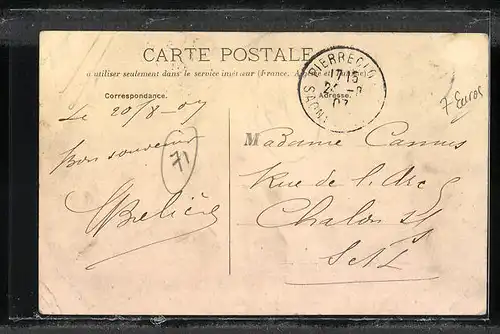 CARTE POSTALE
à utiliser seulement dans le service intérieur (France, Algérie et Tunisie)
Correspondance.
Adresse.
PIERRECLOS
17 15
SAONE
07
7 Euros
Le 20/8-07
Bon souvenir
71
Madame Camus
Rue de l'Arc
Chalon s/
S et L